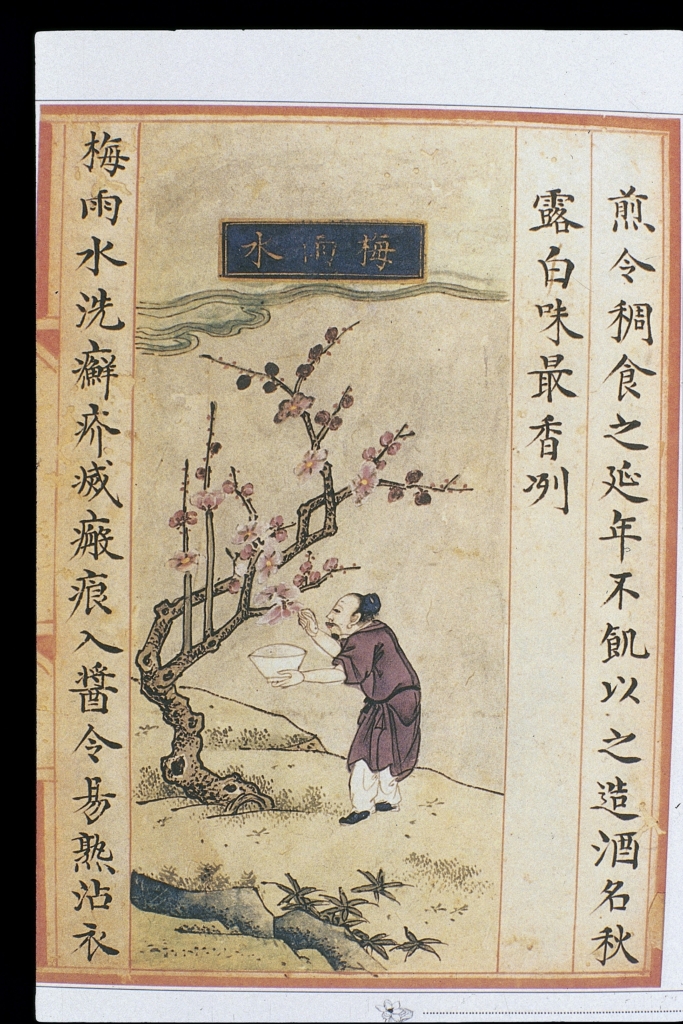 煎令稠食之延年不飢以之造酒名秋
露白味最香冽
梅雨水
梅雨水洗癬疥滅瘢痕入醬令易熟沾衣